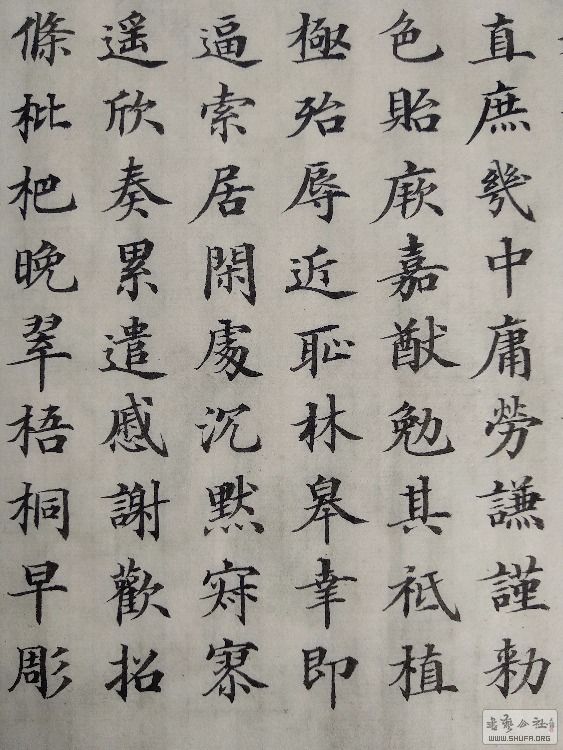 直庶幾中庸勞謙謹勑
色貽厥嘉猷勉其祗植
極殆辱近恥林皋幸即
逼索居閑處沉默寂寥
遥欣奏累遣慼謝歡招
條枇杷晚翠梧桐早彫
WWW.SHUFA.ORG